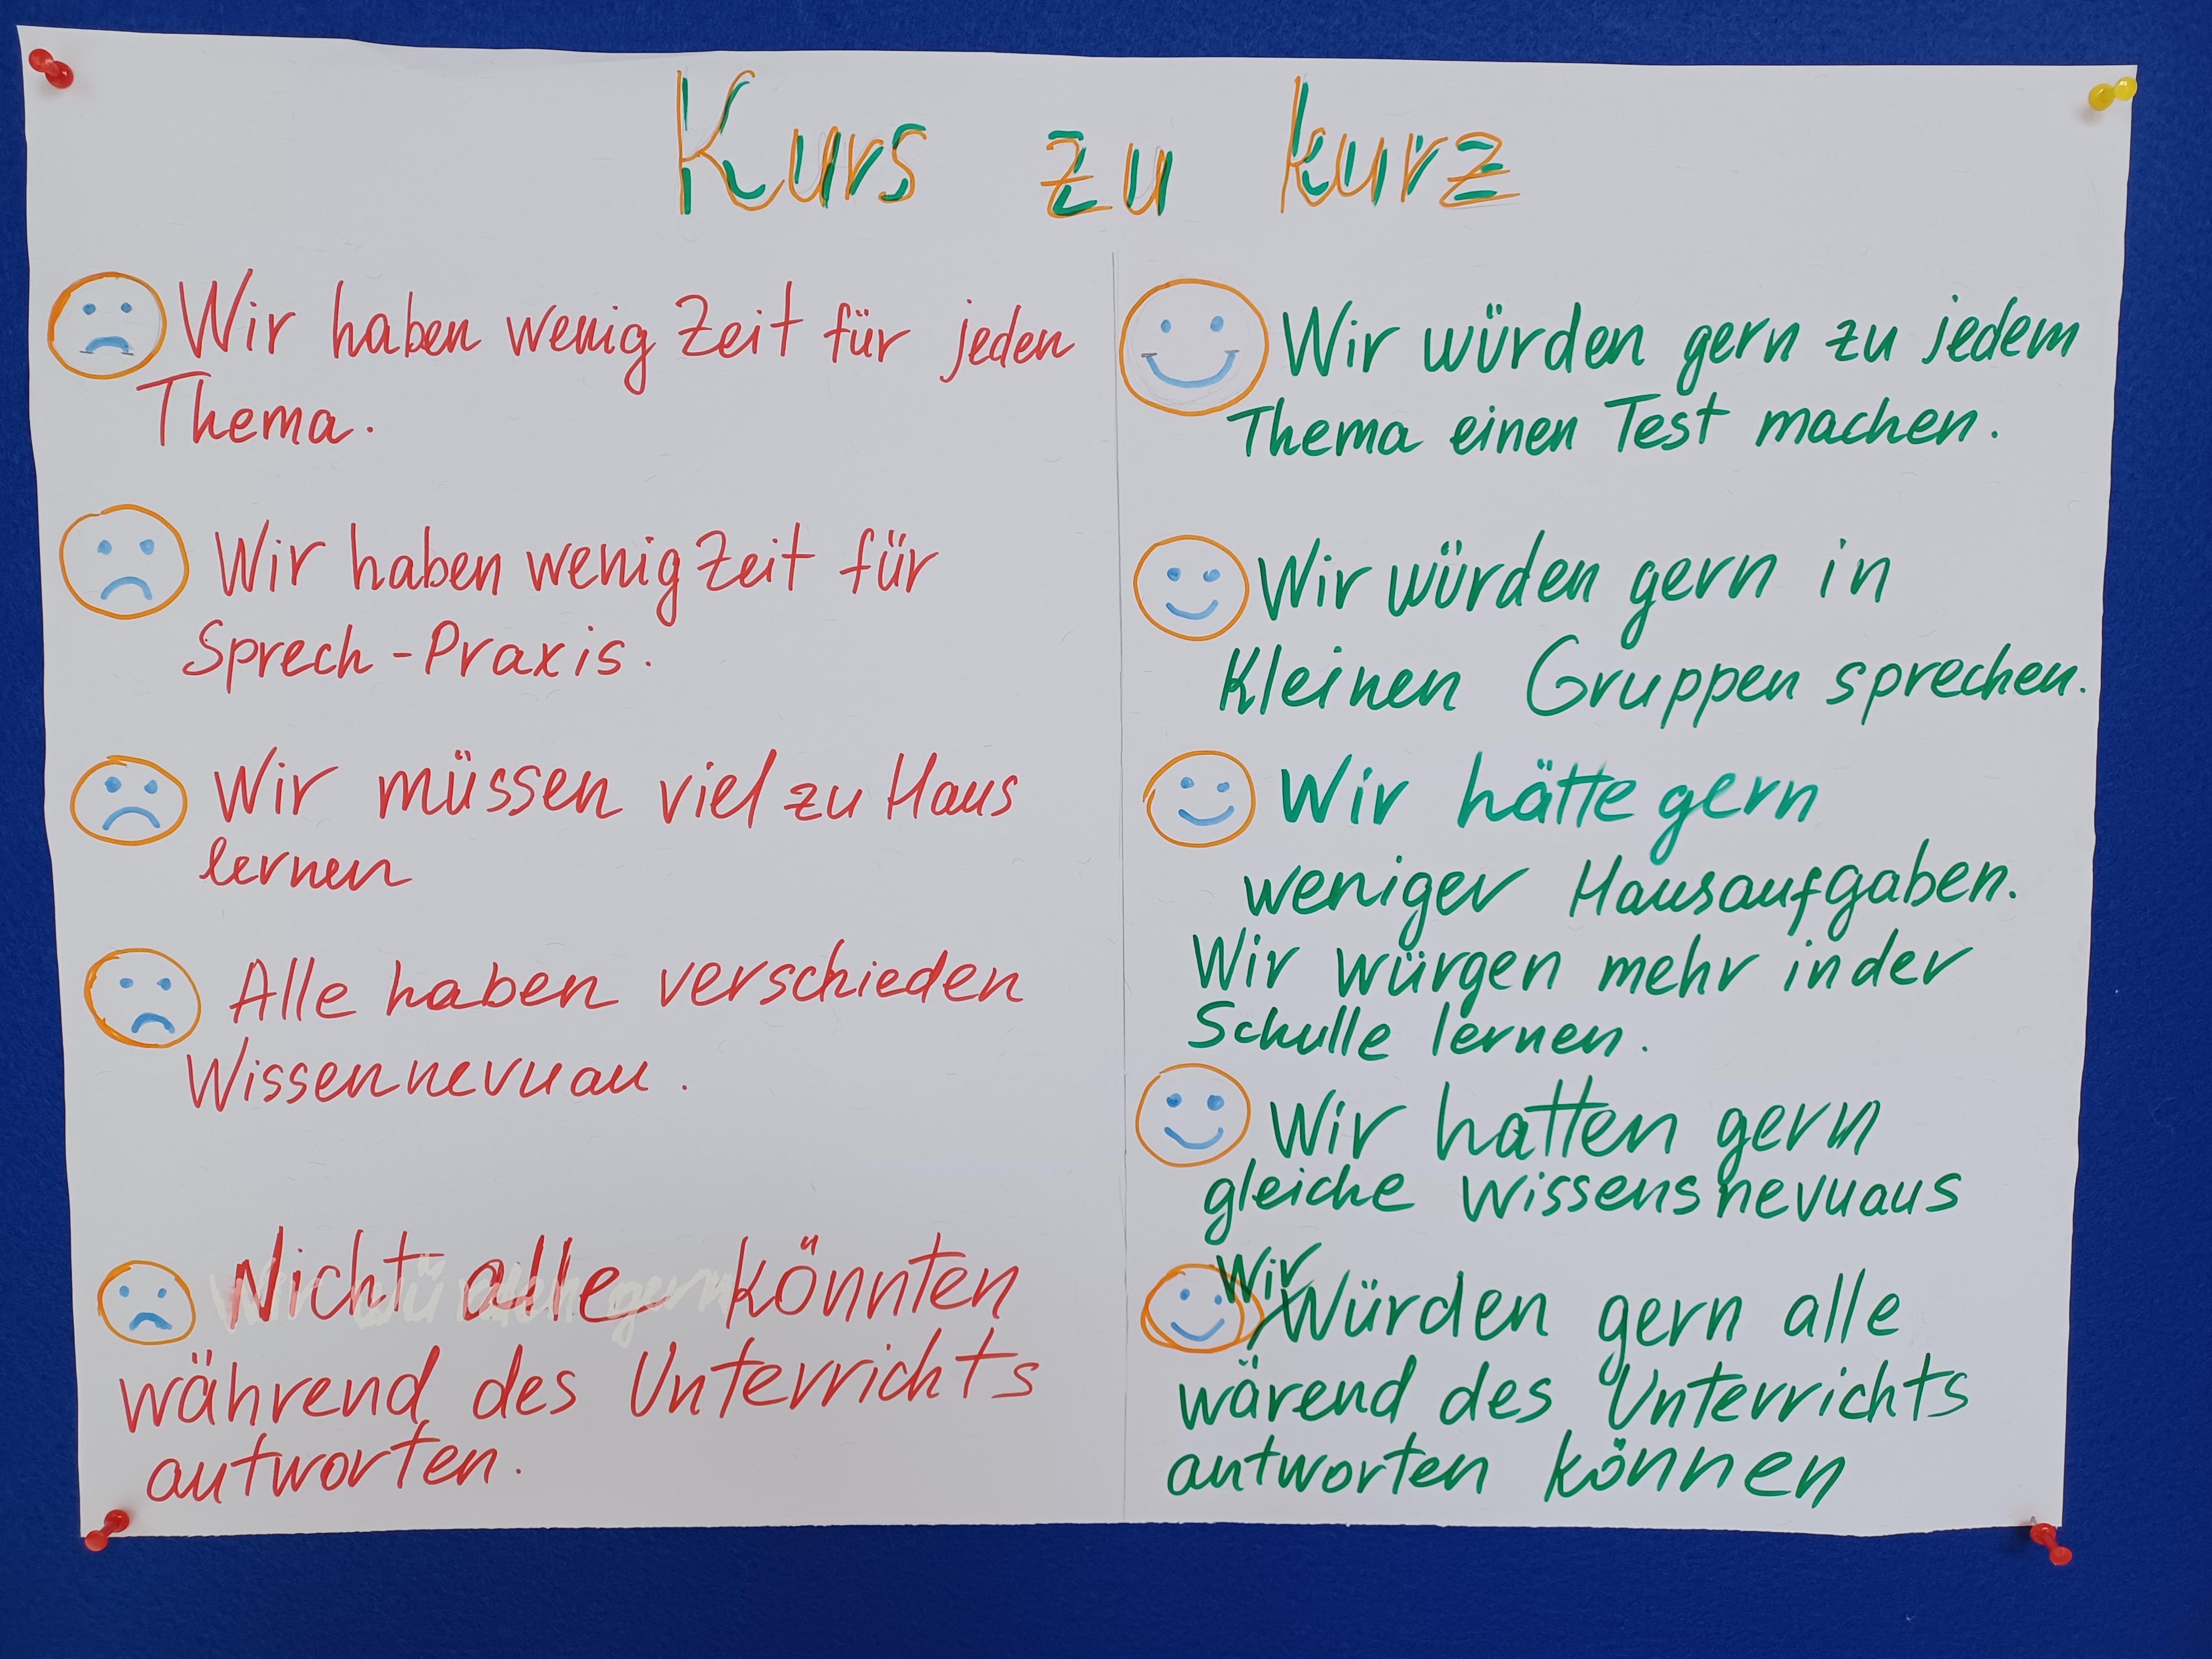 Kurs zu kurz
Wir haben wenig Zeit für jeden
Thema.
Wir haben wenig Zeit für
Sprech-Praxis.
Wir müssen viel zu Haus
lernen
Alle haben verschieden
Wissennevuau.
Nicht alle könnten
während des Unterrichts
antworten.
Wir würden gern zu jedem
Thema einen Test machen.
Wir würden gern in
Kleinen Gruppen sprechen.
Wir hätte gern
weniger Hausaufgaben.
Wir würgen mehr in der
Schulle lernen.
Wir hatten gern
gleiche Wissensnevuaus
Wir
Würden gern alle
wärend des Unterrichts
antworten können